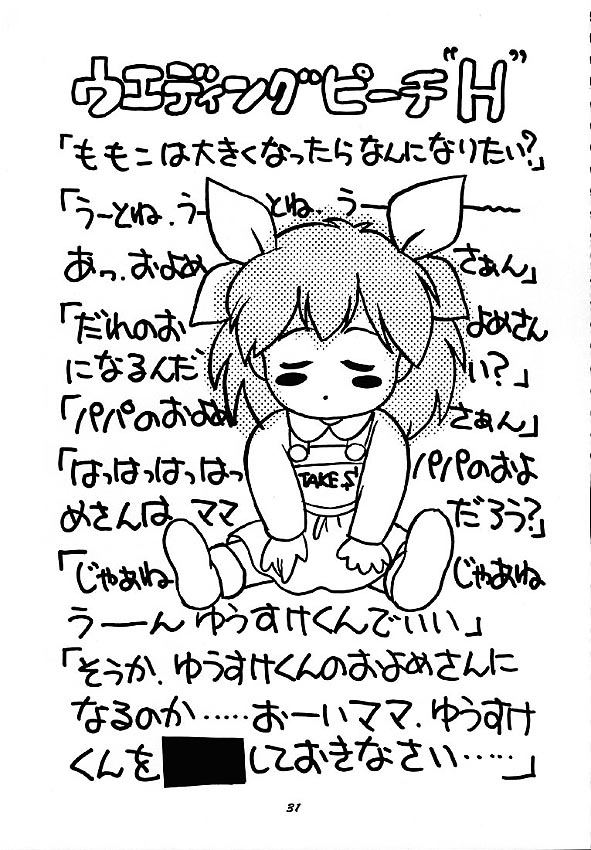 ウエディングピーチ"H"
「ももこは大きくなったらなんになりたい?」
「うーとね.うーとね.うー〜〜
あっ.およめさぁん」
「だれのおよめさん
になるんだい?」
「パパのおよめさぁん」
「はっはっはっはっパパのおよ
めさんは、ママだろう?」
「じゃあねじゃあね
うーーんゆうすけくんでいいい」
「そうか.ゆうすけくんのおよめさんに
なるのか……おーいママ.ゆうすけ
くんをしておきなさい……」
TAKE$
31